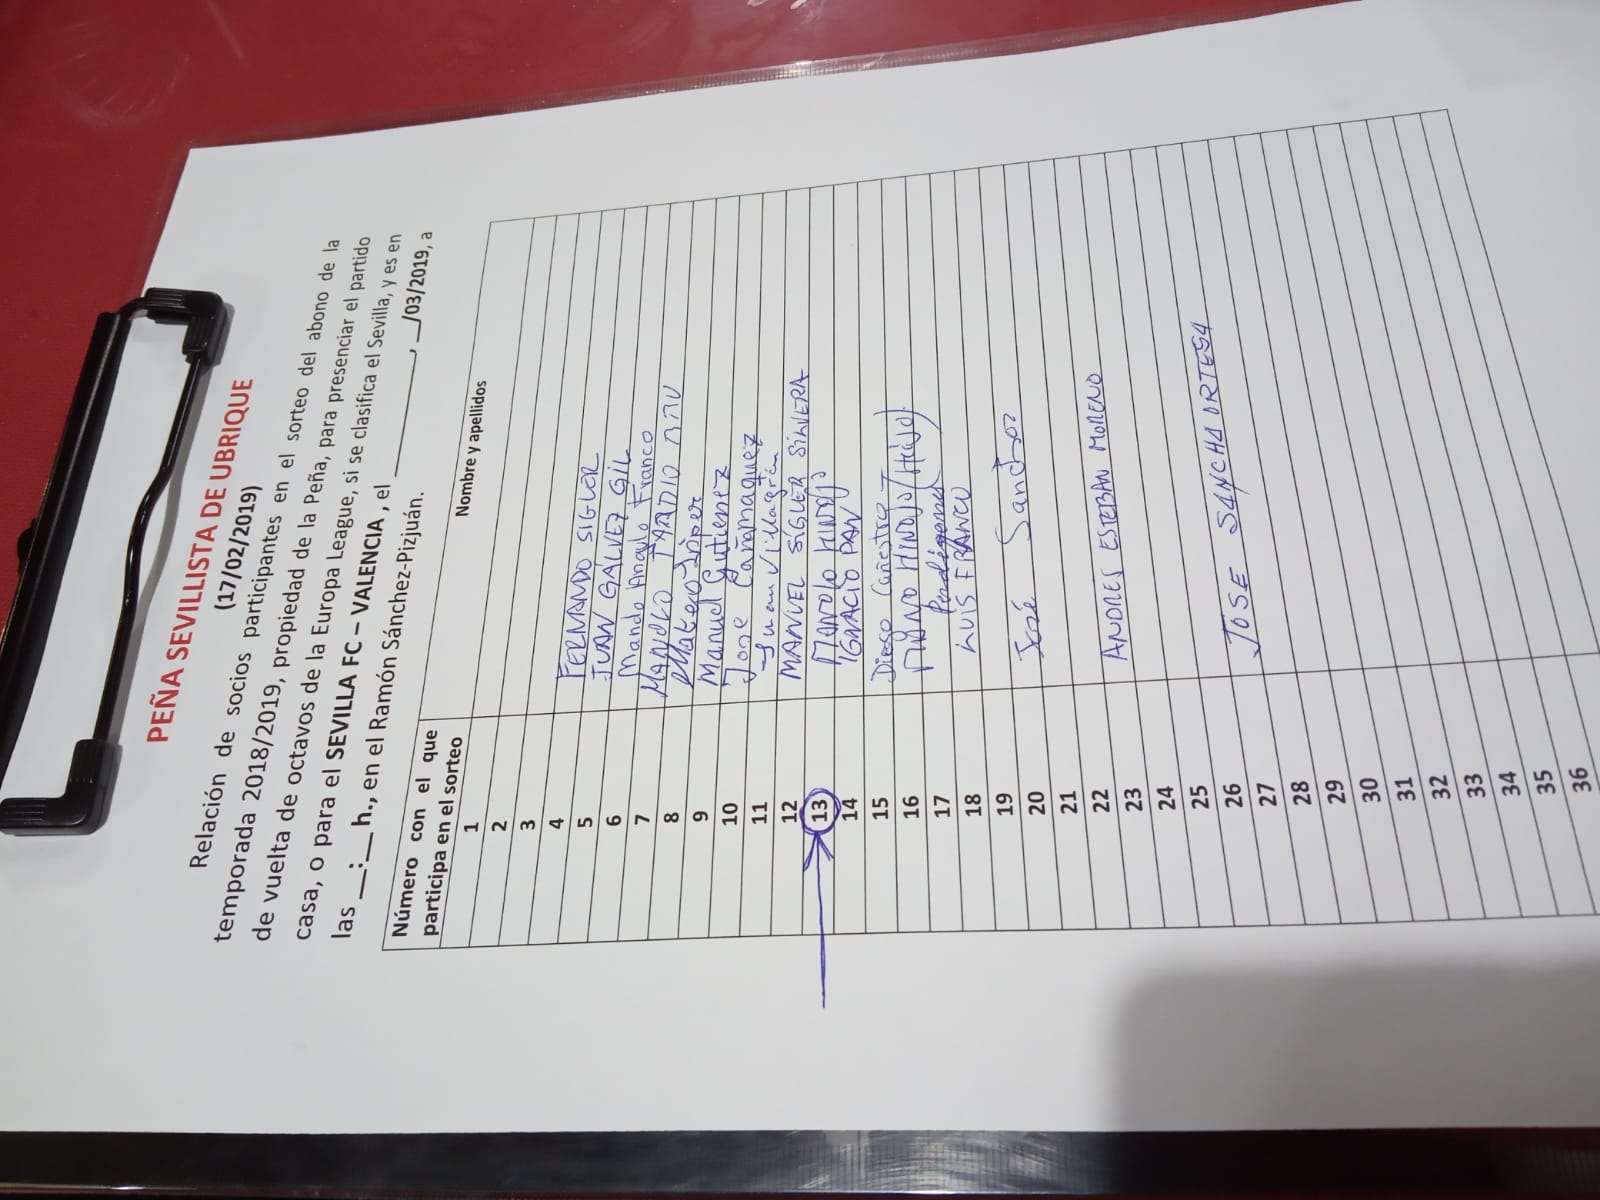 PEÑA SEVILLISTA DE UBRIQUE
(17/02/2019)
Relación de socios participantes en el sorteo del abono de la
temporada 2018/2019, propiedad de la Peña, para presenciar el partido
de vuelta de octavos de la Europa League, si se clasifica el Sevilla, y es en
casa, o para el SEVILLA FC – VALENCIA , el ________, __/03/2019, a
las __:__ h., en el Ramón Sánchez-Pizjuán.
Número con el que participa en el sorteo Nombre y apellidos
1
2
3
4 FERNANDO SIGLER
5 JUAN GÁLVEZ GIL
6 Angulo Franco
7 MANOLO
8 Mateo
9 Manuel Gutierrez
10 Jose Cañamaquez
11 Juan Villagrán
12 MANUEL SIGLER SILVERA
13 MANOLO HINOJO
14 IGNACIO PAN
15 Diego Cañestro
16 MANOLO HINOJO (Hijo).
17 Perdigones
18 LUIS FRANCO
19
20 José
21
22
23 ANDRES ESTEBAN MORENO
24
25
26
27 JOSE SANCHA ORTEGA
28
29
30
31
32
33
34
35
36